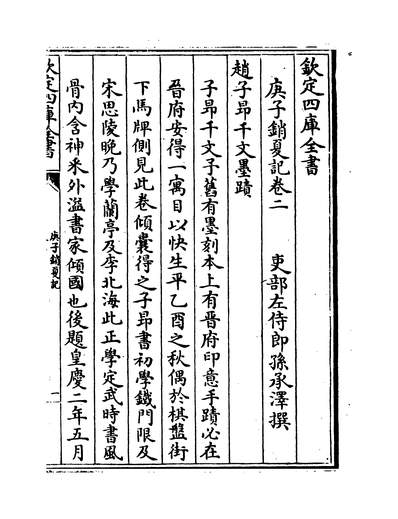 欽定四庫全書
庚子銷夏記卷二　　吏部左侍郎孫承澤撰
趙子昻千文墨蹟
子昻千文予舊有墨刻本上有晉府印意手蹟必在
晉府安得一寓目以快生平乙酉之秋偶於棋盤街
下馬牌側見此卷傾囊得之子昻書初學鐵門限及
宋思陵晚乃學蘭亭及李北海此正學定武時書風
骨内含神采外溢書家傾國也後題皇慶二年五月
欽定四庫全書
庚子銷夏記
一